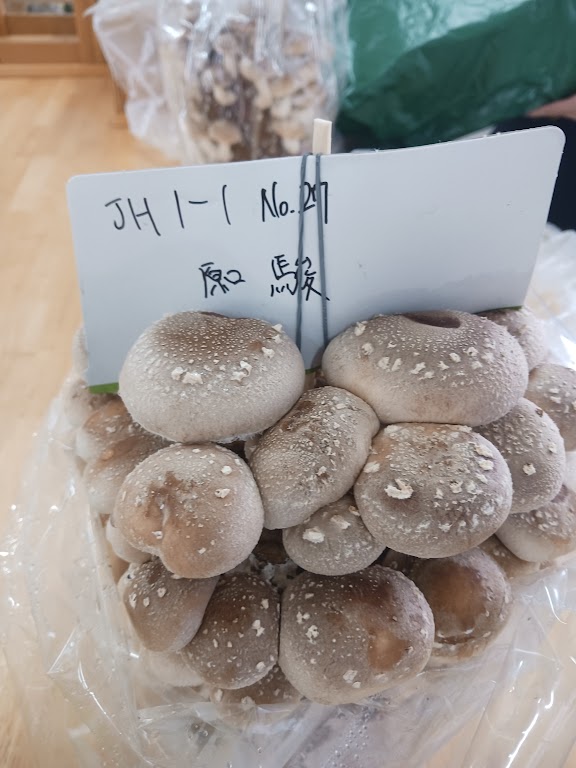 JH 1-1 No.27
原口 駿